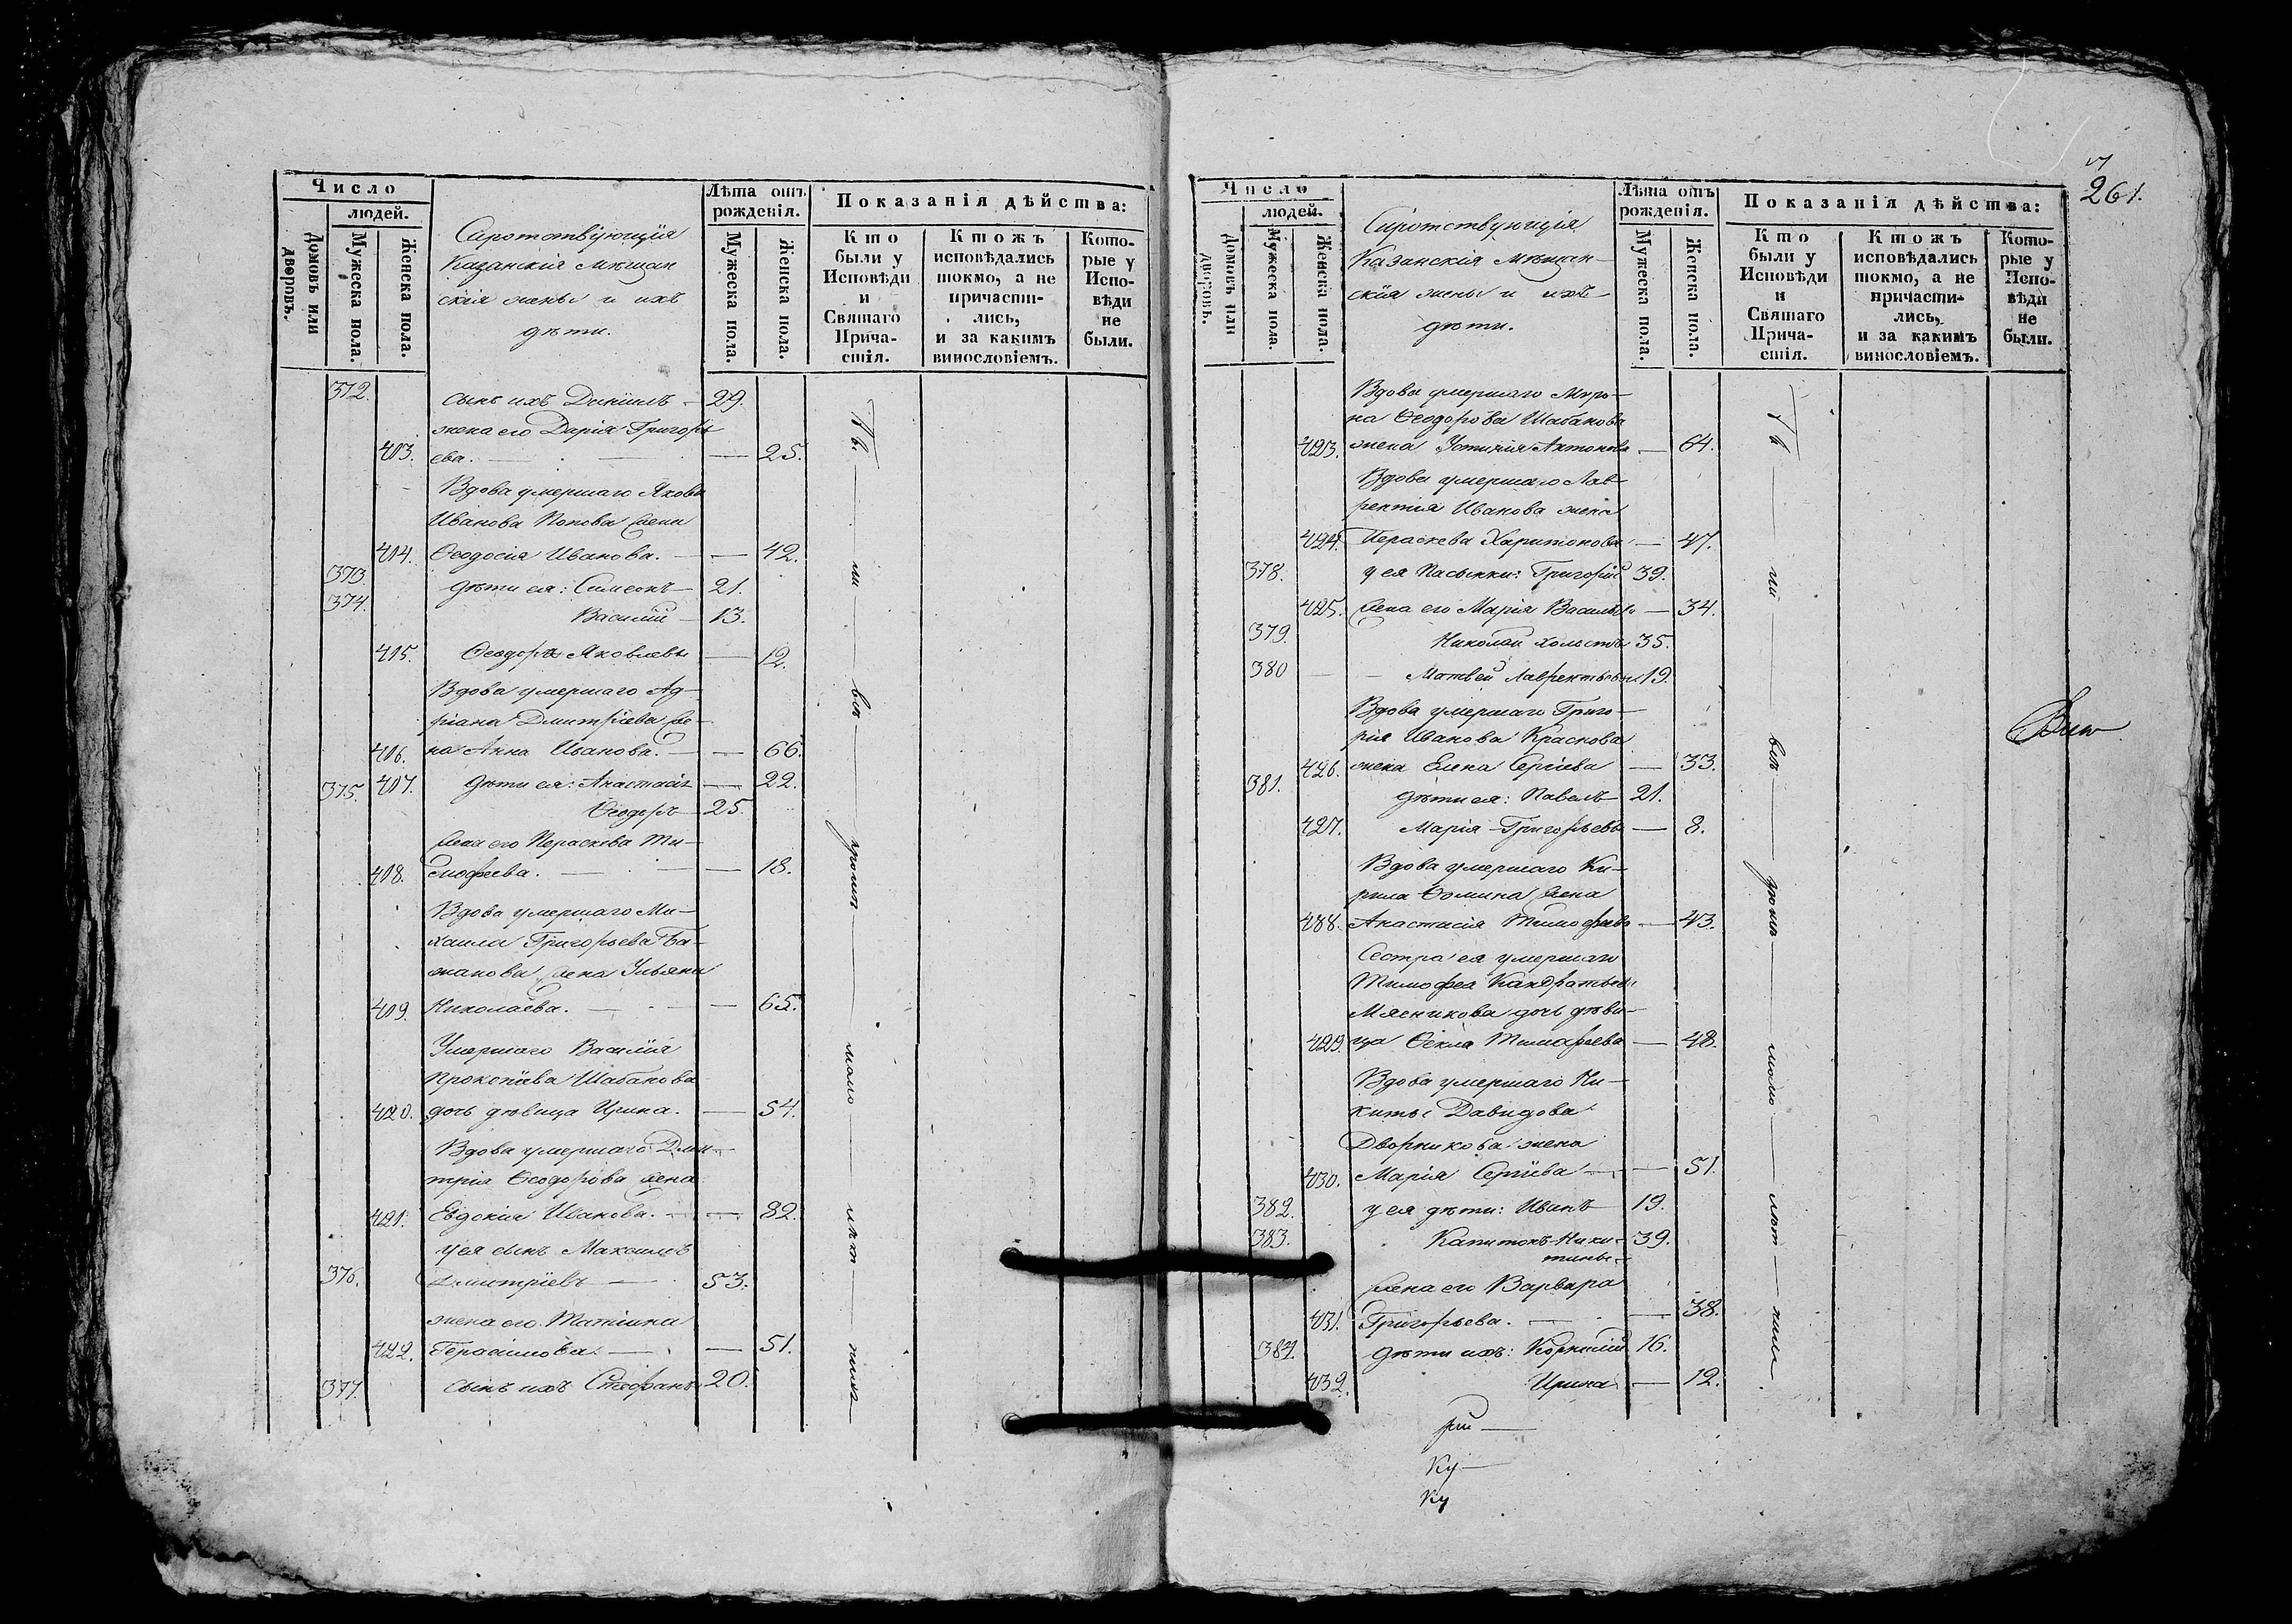 Число
людей.
Домовъ или дворовъ.
Мужеска пола.
Женска пола.
Сиротствующія
Казанскія мѣщан
скія жены и ихъ
дѣти.
Лѣта отъ
рожденія.
Мужеска пола.
Женска пола.
Показанія дѣйства:
Кто
были у
Исповѣди
и
Святаго
Прича-
стія.
Ктожъ
исповѣдались
токмо, а не
причасти-
лись,
и за какимъ
винословіемъ.
Кото-
рые у
Испо-
вѣди
не
были.
372. сынъ ихъ Даніилъ 29.
жена его Дарія Григорь
413. ева. — 25.
Вдова умершаго Якова
Иванова Попова жена
414. Ѳеодосія Иванова. — 42.
373 дѣти ея: Симеонъ 21.
374. Василій 13.
415. Ѳеодора Яковлевы — 12.
Вдова умершаго Ад-
ріана Дмитріева же-
416. на Анна Иванова. — 66.
417. дѣти ея: Анастасія — 22.
375. Ѳеодоръ 25.
жена его Параскева Ти-
418. моѳеева. — 18.
Вдова умершаго Ми-
хаила Григорьева Ба-
жанова жена Ульяна
419. Николаева. — 65.
Умершаго Василія
Прокопіева Шабанова
420. дочь дѣвица Ирина. — 54.
Вдова умершаго Дми-
трія Ѳеодорова жена
421. Евдокія Иванова. — 82.
у ея сынъ Максимъ
376. Дмитріевъ — 53.
жена его Татіана
422. Герасимова. — 51.
377. сынъ ихъ Стефанъ 20.
261.
Число
людей.
Домовъ или дворовъ.
Мужеска пола.
Женска пола.
Сиротствующія
Казанскія мѣщан-
скія жены и ихъ
дѣти.
Лѣта отъ
рожденія.
Мужеска пола.
Женска пола.
Показанія дѣйства:
Кто
были у
Исповѣди
и
Святаго
Прича-
стія.
Ктожъ
исповѣдались
токмо, а не
причасти-
лись,
и за какимъ
винословіемъ.
Кото-
рые у
Испо-
вѣди
не
были.
Вдова умершаго Миро-
на Ѳеодорова Шабанова
423. жена Устинія Антонова — 64.
Вдова умершаго Лав-
рентія Иванова жена
424. Параскева Харитонова — 47.
378. у ея пасынки: Григорій 39.
425. жена его Марія Васильева — 34.
379. Николай холостъ 35.
380 Матвей Лаврентьевы 19.
Вдова умершаго Григо-
рія Иванова Краснова
426. жена Елена Сергіева — 33.
381. дѣти ея: Павелъ 21.
427. Марія Григорьевы — 8.
Вдова умершаго Ки-
рила Ѳомина жена
428. Анастасія Тимоѳеева — 43.
Сестра ея умершаго
Тимоѳея Кандратьева
Мясникова дочь дѣви-
429. ца Ѳекла Тимоѳеева — 48.
Вдова умершаго Ни-
киты Давидова
Дворникова жена
430. Марія Сергіева — 51.
382. у ея дѣти: Иванъ 19.
383. Капитонъ Ники- 39.
тины
жена его Варвара
431. Григорьева. — 38.
384. дѣти ихъ: Корнилій 16.
432. Ирина — 12.
Ку
Ку